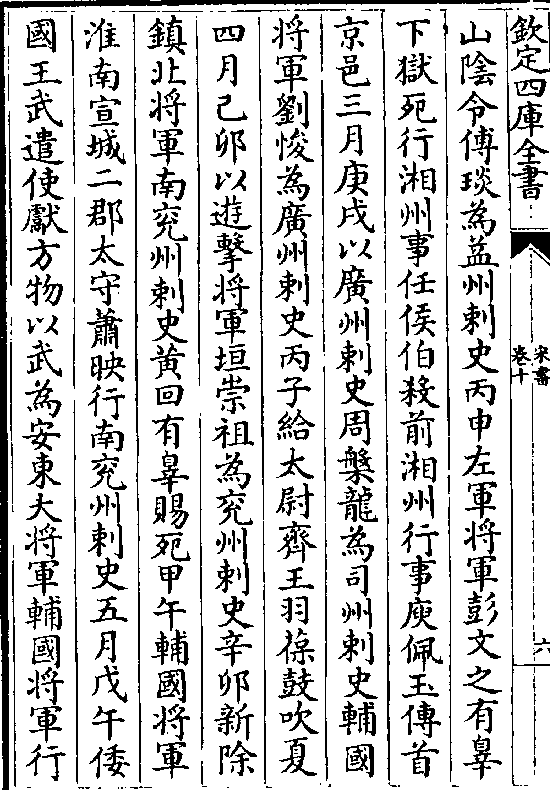 欽定四庫全書
宋書
卷十
六
山陰令傅琰為益州刺史丙申左軍將軍彭文之有辠
下獄死行湘州事任侯伯殺前湘州行事庾佩玉傳首
京邑三月庚戌以廣州刺史周槃龍為司州刺史輔國
將軍劉悛為廣州刺史丙子給太尉齊王羽葆鼓吹夏
四月己卯以遊擊將軍垣崇祖為兖州刺史辛卯新除
鎮北將軍南兖州刺史黄回有辠賜死甲午輔國將軍
淮南宣城二郡太守蕭映行南兖州刺史五月戊午倭
國王武遣使獻方物以武為安東大將軍輔國將軍行